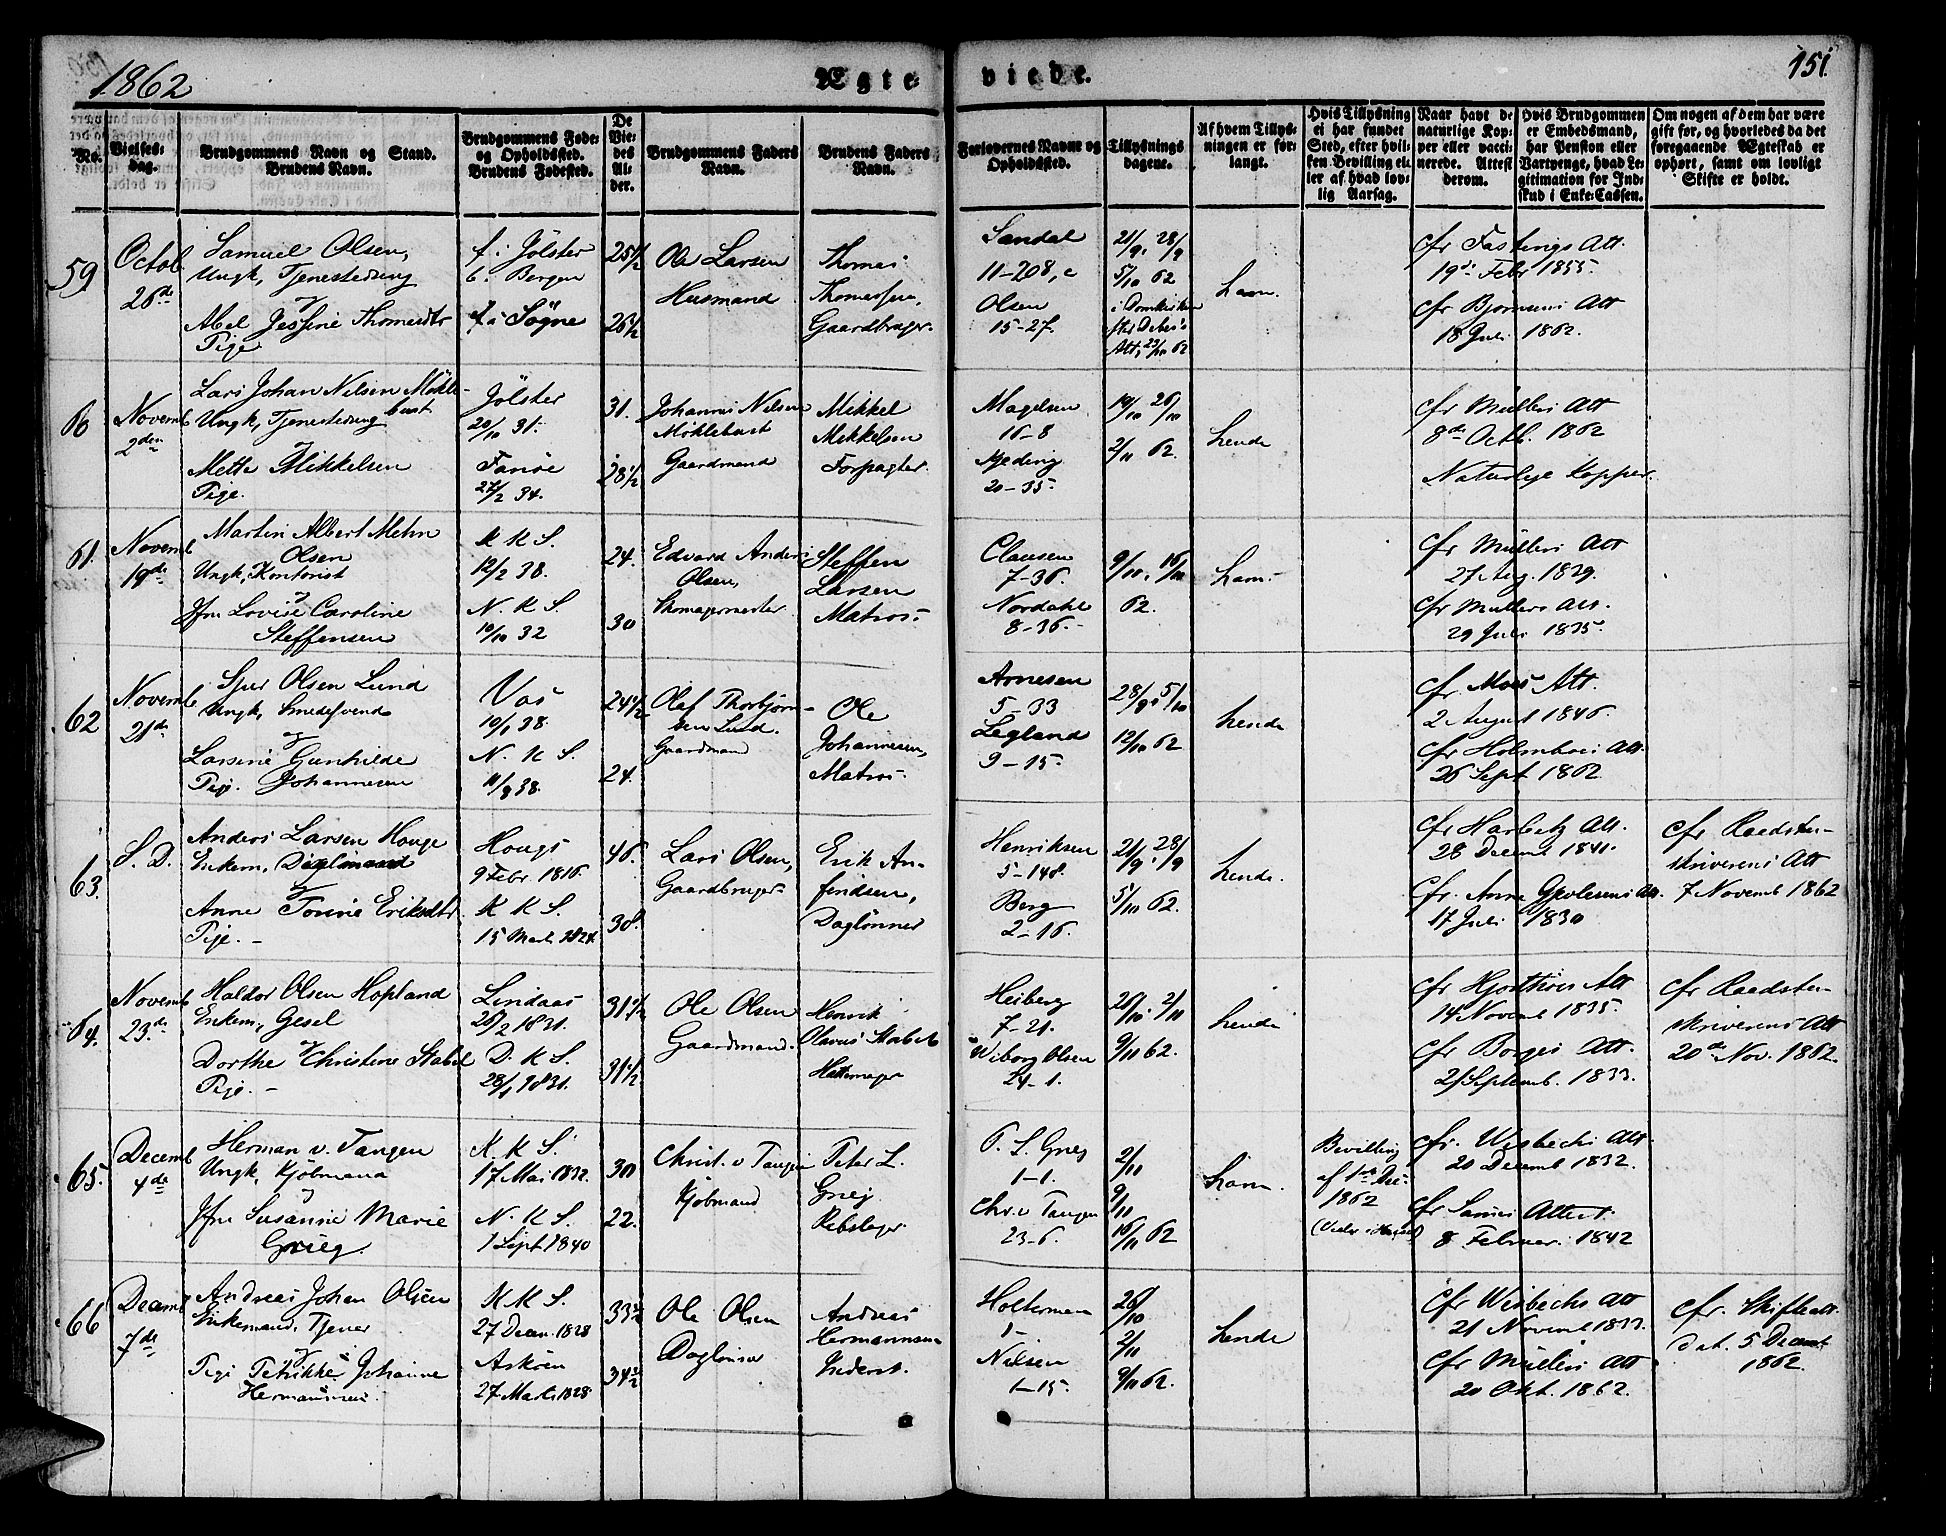 1862
Ægte
viede.
151.
No.
Vielses-
dag.
Brudgommens Navn og Stand.
Brudens Navn.
Brudgommens Føde-
og Opholdssted.
Brudens Fødested.
De
Vie-
des
Al-
der.
Brudgommens Faders
Navn.
Brudens Faders
Navn.
Forlovernes Navne og
Opholdssted.
Tillysnings
dagene.
Af hvem Tillys-
ningen er for-
langt.
Hvis Tillysning
ei har fundet
Sted, efter hvil-
ken Bevilling el-
ler af hvad lov-
lig Aarsag.
Naar havt de
naturlige Kop-
per eller vacci-
nerede. Attest
derom.
Hvis Brudgommen
er Embedsmand,
har Pension eller
Vartpenge, hvad Le-
gitimation for Ind-
skud i Enke-Cassen.
Om nogen af dem har være
gift før, og hvorledes da det
foregaaende Ægteskab er
ophørt, samt om lovligt
Skifte er holdt.
59
Octob
26de
Samuel Olsen,
Ungk, Tjenestedreng
&
Abel Jessine Thomasdtr
Pige
f. i Jölster
b. Bergen
f. i Sögne
25 1/2
26 1/2
Ole Larsen
Husmand
Thomas
Thomassen,
Gaardbruger
Sandal
11-208,c
Olsen
15-27.
21/9, 28/9
5/10 62
i Domkirken
Att, 23/10 62
ham.
cfr Fastings Att.
19de Febr 1855
cfr Bjornsens Att
18 Juli 1862.
60
Novemb
2den
Lars Johan Nilsen Mökle-
bust
Ungk, Tjenestedreng
&
Mette Mikkelsen
Pige.
Jölster
20/10 31.
Fanöe
27/2 34.
31.
28 1/2
Johannes Nilsen
Möklebust
Gaardmand
Mikkel
Mikkelsen
Forpagter
Magelsen
16-8
20-35
19/10 26/10
2/11 62.
hende
cfr Müllers Att
8de Octb. 1862
Naturlige Kopper.
61.
Novemb
19de
Martin Albert Mehn
Olsen
Ungk, Kontorist
&
Jfm Lovise Caroline
Steffensen
K K S.
12/2 38.
N. K S.
19/10 32
24.
30
Edvard Anders
Olsen,
Skomagermester
Steffen
Larsen
Matros
Clausen
7-36.
Nordahl
8-36.
9/11, 16/11
62.
ham
cfr Müllers Att
27 Aug. 1839.
cfr Müllers Att.
29 Juli 1835.
62
Novemb
21de
Sjur Olsen Lund
Ungk, Smedesvend
&
Larsine Gunhilde
Pige. Johannesen
Vos
10/1 38.
N. K S.
11/8 38.
24 1/2
24.
Olaf Thorbjörn-
sen Lund.
Gaardmand
Ole
Johannesen,
Matros
Arnesen
5-33
Legland
9-15.
28/9, 5/10
12/10 62
hende
cfr. Moes Att.
2 August 1846.
cfr Holmboes Att.
26 Sept 1862.
63.
S. D.
Anders Larsen Houge
Enkem, Daglönner
&
Anne Tonine Eriksdtr
Pige. -
Hougs
9 Febr. 1816.
K K S.
15 Mart. 1824.
46.
38.
Lars Olsen,
Gaardbruger
Erik An-
findsen,
Daglönner
Henriksen
5-148.
Berg
2-16.
21/9, 28/9
5/10 62.
hende.
cfr Harbitz Att.
28 Decemb 1841.
cfr. Anne Att.
17 Juli 1830
cfr Raadstu-
skriverens Att
7 Novemb 1862
64.
Novemb
23de
Haldor Olsen Hopland
Enkem, Gesel
&
Dorthe Christine Stabel
Pige. -
Lindaas
26/2 1831.
D. K S.
28/1 1831.
31 1/2
31 1/2
Ole Olsen
Gaardmand.
Henrik
Olavus Stabel
Hattemager
Heiberg
7-21.
Wiborg Olsen
24-1.
26/10, 2/11
9/11 62.
hende
cfr Hjorthöis Att
14 Novemb 1835.
cfr Borges Att.
21 Septemb. 1833.
cfr Raadstu-
skriverens Att
20de Nov. 1862.
65.
Decemb
4de
Herman v. Tangen
Ungk, Kjöbmand
&
Jfm Susanne Marie
Grieg.
K. K S.
17 Mai 1832.
N. K S.
1 Sept 1840
30
22.
Christ. v Tangen
Kjöbmand
Peter L.
Grieg
Rebslager
P. L. Grieg
1-1.
Chr. v Tangen
23-6.
2/11
9/11
16/11 62
ham.
Bevilling
af 1de Dec
1862
(Viede i Huset)
cfr. Wisbechs Att.
20 Decemb 1832.
cfr Sames Attest.
8 Februar. 1842
66
Decemb
7de
Andreas Johan Olsen
Enkemand. Tjener
&
Pige Petrikke Johanne
Hermansen.
K K S.
27 Decem. 1828
Asköen
27 Marts 1828
33
34
Ole Olsen
Daglönner
Andreas
Hermannsen
Inderst.
Holterman
1-
Nilsen
1-15.
26/10
2/11
9/11 62.
hende
cfr Wisbechs Att
21 Novemb 1833.
cfr Müllers Att
20 Okt. 1862.
cfr. Skifteatt.
dat. 5 Decemb
1862.